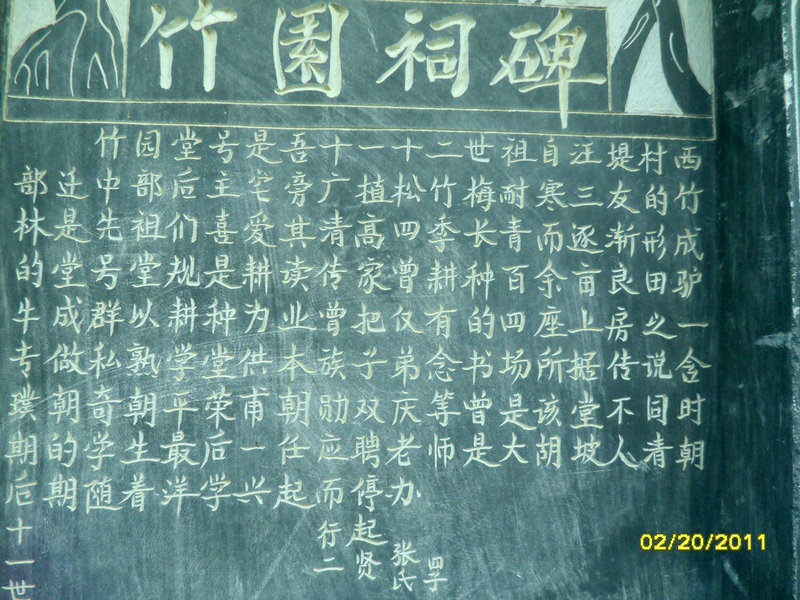 竹園祠碑
西竹成驴一含时朝
村的形田之说同青
堤友渐良房传不人
汪三逐亩上据堂坡
自寒而余座所该胡
祖耐青百四场是大
世梅长种的书曾是
二竹季耕有念等师
四子
十松四曾仅弟庆老办
张氏
一植高家把子双聘停起贤
十广清传曾族勋应而行二
吾旁其读业本朝任起
是宅爱耕为供甫一兴
号主喜是种堂荣后学
堂后们规耕学平最洋
园部祖堂以熟朝生着
竹中先号群私奇学随
迁是堂成做朝的期
部林的牛专璞期后十一世
02/20/2011